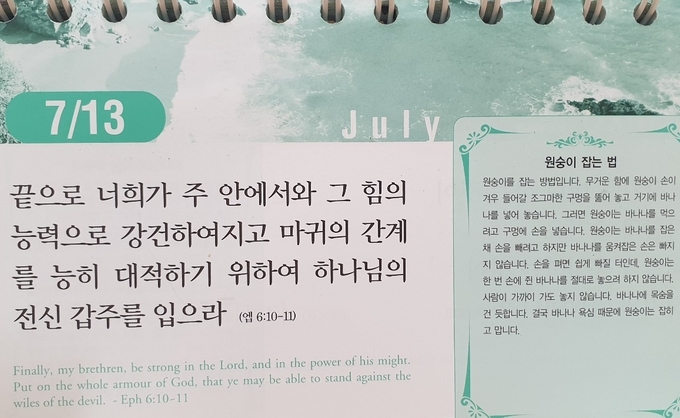 7/13
July
끝으로 너희가 주 안에서와 그 힘의
능력으로 강건하여지고 마귀의 간계
를 능히 대적하기 위하여 하나님의
전신 갑주를 입으라 (엡 6:10-11)
Finally, my brethren, be strong in the Lord, and in the power of his might.
Put on the whole armour of God, that ye may be able to stand against the
wiles of the devil. - Eph 6:10-11
원숭이 잡는 법
원숭이를 잡는 방법입니다. 무거운 함에 원숭이 손이
겨우 들어갈 조그마한 구멍을 뚫어 놓고 거기에 바나
나를 넣어 놓습니다. 그러면 원숭이는 바나나를 먹으
려고 구멍에 손을 넣습니다. 원숭이는 바나나를 잡은
채 손을 빼려고 하지만 바나나를 움켜잡은 손은 빠지
지 않습니다. 손을 펴면 쉽게 빠질 터인데, 원숭이는
한 번 손에 쥔 바나나를 절대로 놓으려 하지 않습니다.
사람이 가까이 가도 놓지 않습니다. 바나나에 목숨을
건 듯합니다. 결국 바나나 욕심 때문에 원숭이는 잡히
고 맙니다.